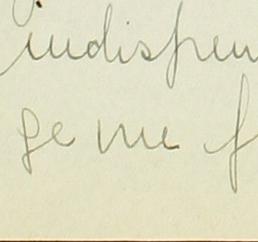 indispen
ge me f